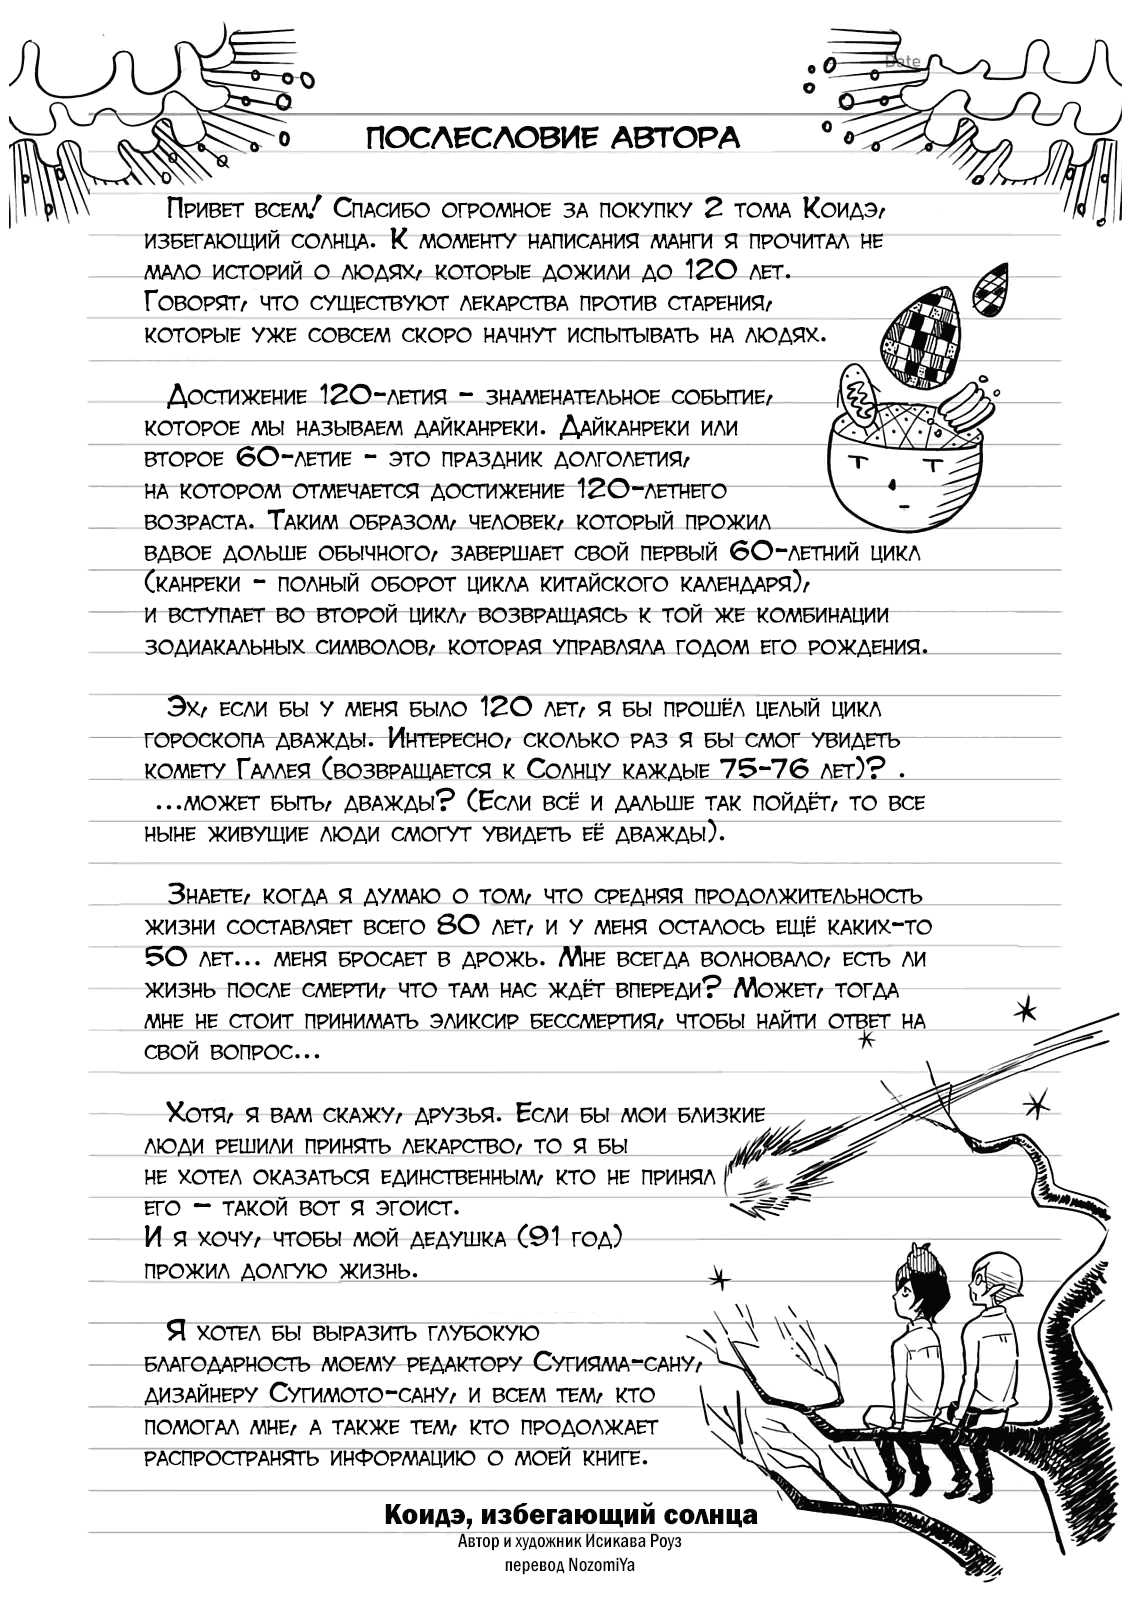 Date
ПОСЛЕСЛОВИЕ АВТОРА
Привет всем! Спасибо огромное за покупку 2 тома Коидэ,
избегающий солнца. К моменту написания манги я прочитал не
мало историй о людях, которые дожили до 120 лет.
Говорят, что существуют лекарства против старения,
которые уже совсем скоро начнут испытывать на людях.
Достижение 120-летия - знаменательное событие,
которое мы называем дайканреки. Дайканреки или
второе 60-летие - это праздник долголетия,
на котором отмечается достижение 120-летнего
возраста. Таким образом, человек, который прожил
вдвое дольше обычного, завершает свой первый 60-летний цикл
(канреки - полный оборот цикла китайского календаря),
и вступает во второй цикл, возвращаясь к той же комбинации
зодиакальных символов, которая управляла годом его рождения.
Эх, если бы у меня было 120 лет, я бы прошёл целый цикл
гороскопа дважды. Интересно, сколько раз я бы смог увидеть
комету Галлея (возвращается к Солнцу каждые 75-76 лет)? .
...может быть, дважды? (Если всё и дальше так пойдёт, то все
ныне живущие люди смогут увидеть её дважды).
Знаете, когда я думаю о том, что средняя продолжительность
жизни составляет всего 80 лет, и у меня осталось ещё каких-то
50 лет... меня бросает в дрожь. Мне всегда волновало, есть ли
жизнь после смерти, что там нас ждёт впереди? Может, тогда
мне не стоит принимать эликсир бессмертия, чтобы найти ответ на
свой вопрос...
Хотя, я вам скажу, друзья. Если бы мои близкие
люди решили принять лекарство, то я бы
не хотел оказаться единственным, кто не принял
его - такой вот я эгоист.
И я хочу, чтобы мой дедушка (91 год)
прожил долгую жизнь.
Я хотел бы выразить глубокую
благодарность моему редактору Сугияма-сану,
дизайнеру Сугимото-сану, и всем тем, кто
помогал мне, а также тем, кто продолжает
распространять информацию о моей книге.
Коидэ, избегающий солнца
Автор и художник Исикава Роуз
перевод NozomiYa